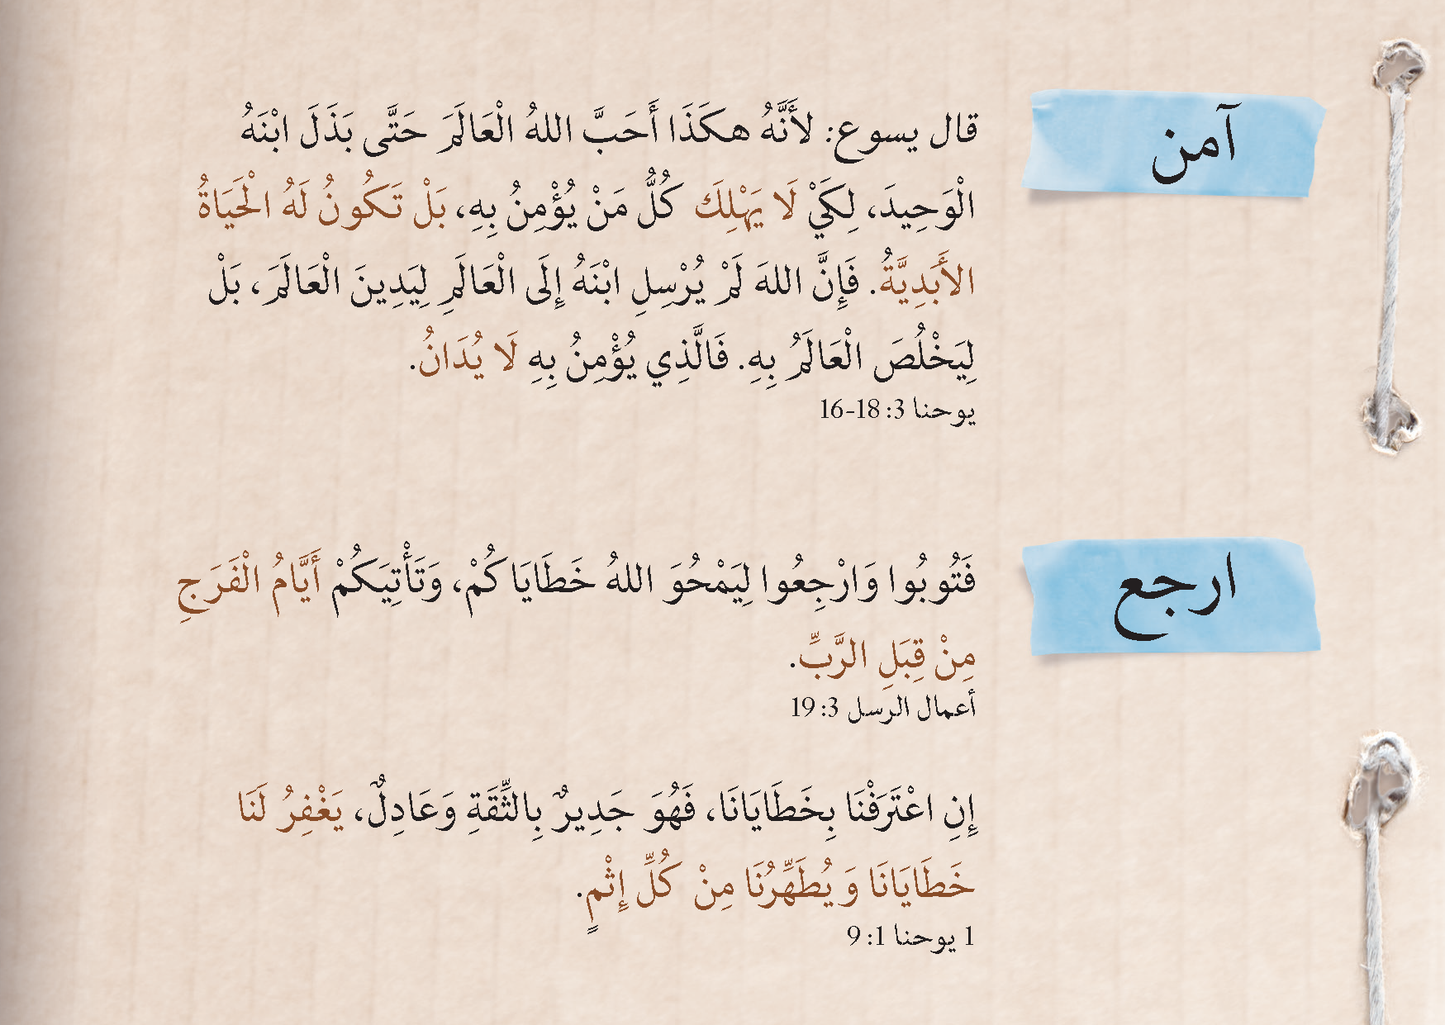 آمن
قال يسوع: لأَنَّهُ هكَذَا أَحَبَّ اللهُ الْعَالَمَ حَتَّى بَذَلَ ابْنَهُ
الْوَحِيدَ، لِكَيْ لَا يَهْلِكَ كُلُّ مَنْ يُؤْمِنُ بِهِ، بَلْ تَكُونُ لَهُ الْحَيَاةُ
الأَبَدِيَّةُ. فَإِنَّ اللهَ لَمْ يُرْسِلِ ابْنَهُ إِلَى الْعَالَمِ لِيَدِينَ الْعَالَمَ، بَلْ
لِيَخْلُصَ الْعَالَمُ بِهِ. فَالَّذِي يُؤْمِنُ بِهِ لَا يُدَانُ.
يوحنا 3: 16-18
ارجع
فَتُوبُوا وَارْجِعُوا لِيَمْحُوَ اللهُ خَطَايَاكُمْ، وَتَأْتِيَكُمْ أَيَّامُ الْفَرَجِ
مِنْ قِبَلِ الرَّبِّ.
أعمال الرسل 3: 19
إِنِ اعْتَرَفْنَا بِخَطَايَانَا، فَهُوَ جَدِيرٌ بِالثِّقَةِ وَعَادِلٌ، يَغْفِرُ لَنَا
خَطَايَانَا وَيُطَهِّرُنَا مِنْ كُلِّ إِثْمٍ.
1 يوحنا 1: 9